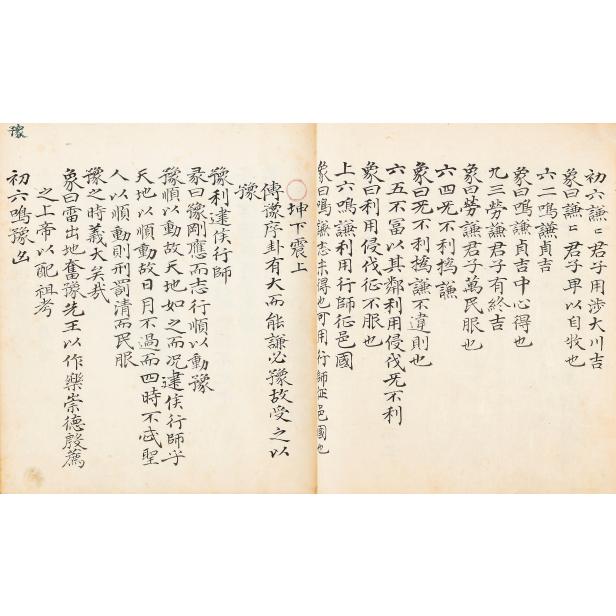 初六謙〻君子用涉大川吉
象曰謙〻君子卑以自牧也
六二鳴謙貞吉
象曰鳴謙貞吉中心得也
九三勞謙君子有終吉
象曰勞謙君子萬民服也
六四无不利撝謙
象曰无不利撝謙不違則也
六五不冨以其鄰利用侵伐无不利
象曰利用侵伐征不服也
上六鳴謙利用行師征邑國
象曰鳴謙志未得也可用行師征邑國也
坤下震上
傳豫序卦有大而能謙必豫故受之以
豫
豫利建侯行師
彖曰豫剛應而志行順以動豫
豫順以動故天地如之而况建侯行師乎
天地以順動故日月不過而四時不忒聖
人以順動則刑罰清而民服
豫之時義大矣哉
象曰雷出地奮豫先王以作樂崇德殷薦
之上帝以配祖考
初六鳴豫凶
豫